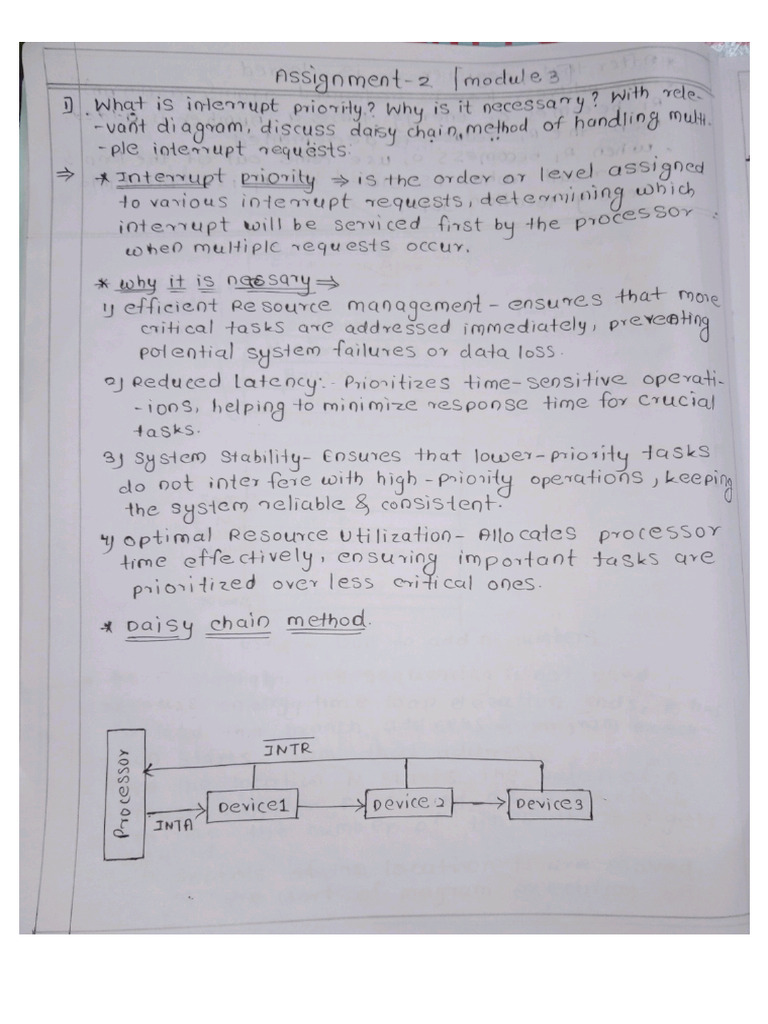 Assignment-2 [module 3]
1) What is interrupt priority? Why is it necessary? With rele-
-vant diagram, discuss daisy chain method of handling multi-
-ple interrupt requests.
⇒ * Interrupt priority ⇒ is the order or level assigned
to various interrupt requests, determining which
interrupt will be serviced first by the processor
when multiple requests occur.
* why it is nessary ⇒
1) efficient Resource management - ensures that more
critical tasks are addressed immediately, preventing
potential system failures or data loss.
2) Reduced Latency:- Prioritizes time-sensitive operati-
-ions, helping to minimize response time for crucial
tasks.
3) System Stability- Ensures that lower-priority tasks
do not interfere with high-priority operations, keeping
the system reliable & consistent.
4) Optimal Resource Utilization- Allocates processor
time effectively, ensuring important tasks are
prioritized over less critical ones.
* Daisy chain method.
INTR
Processor
Device1
Device 2
Device3
INTA